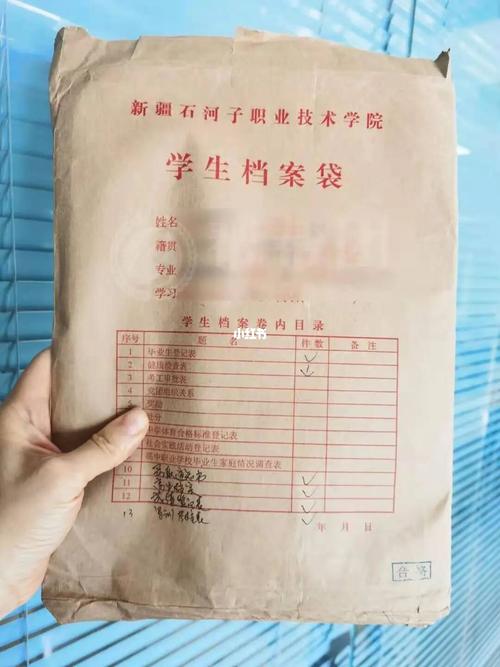 新疆石河子职业技术学院
学生档案袋
姓名
籍贯
专业
学习
学生档案卷内目录
序号 题 名 件数 备注
1 毕业生登记表 ✓
2 健康检查表 ✓
3 考工审批表
4 党团组织关系
5 奖励
处分
学体育合格标准登记表
社会实践活动登记表
高中职业学校毕业生家庭情况调查表
10
11 ✓
12 ✓
13 ✓
年 月 日
小红书